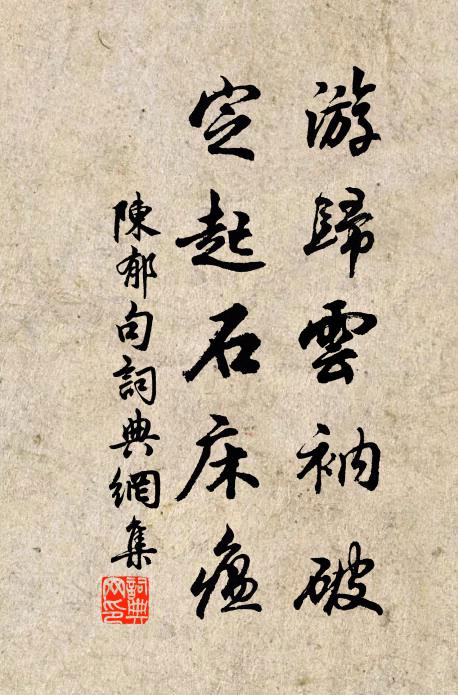 游歸雲衲破
定起石床溫
陳郁句詞典網集
詞典网印